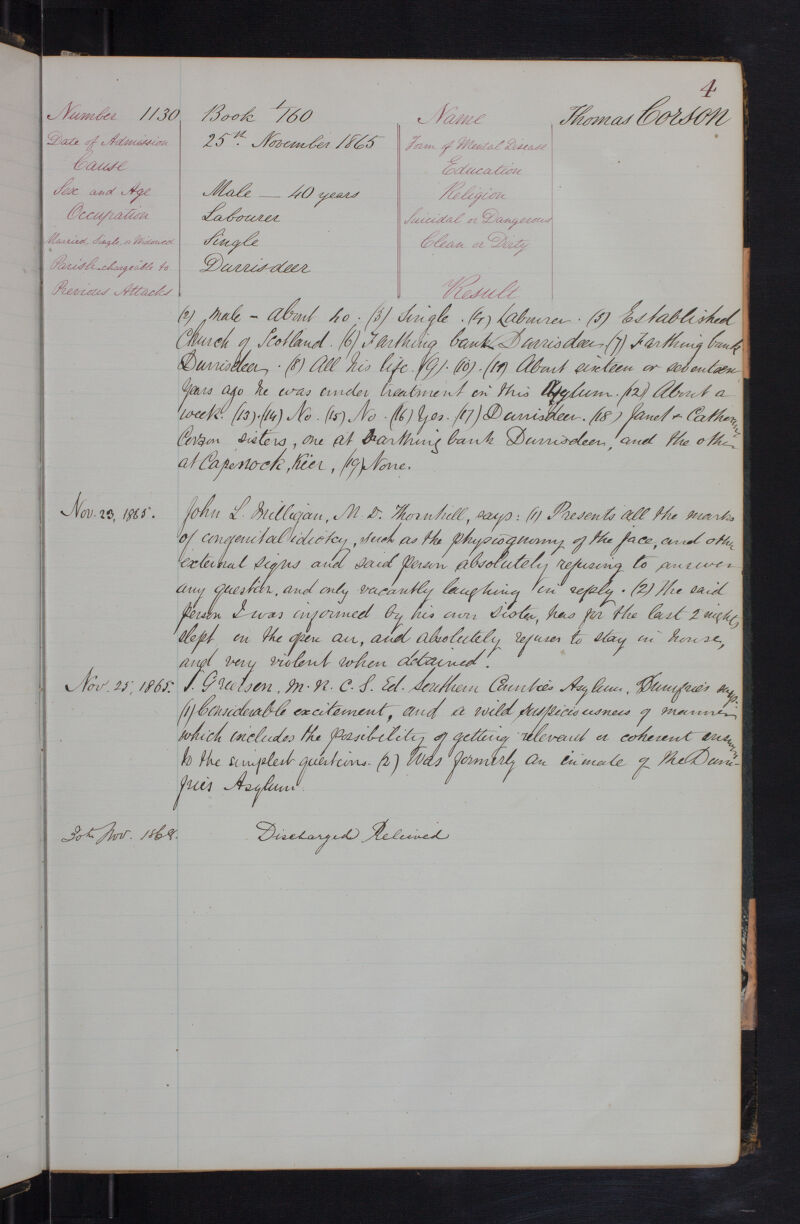 4
Number 1130 Book 1/160 Name Thomas Corson
Date of Admission 25th November 1865 Form of Mental Disease
Cause Education
Sex and Age Male — 40 years Religion
Occupation Labourer Suicidal or Dangerous
Married, Single, or Widowed Single Clean or Dirty
Parish chargeable to Durrisdeer
Previous Attacks Result
(2) Male - About 40. (3) Single. (4) Labourer. (5) Established
Church of Scotland. (6) Farthing bank Durrisdeer (7) Farthing bank
Durrisdeer. (8) All his life. (9). (10). (11) About sixteen or seventeen
years ago he was under treatment in this Asylum. (12) About a
week. (13). (14) No. (15) No. (16) Yes. (17) Durrisdeer. (18) Janet & Catherine
Corson sisters, one at Farthing bank Durrisdeer, and the other
at Capenock, Keir, (19) None.
Nov. 23, 1865. John L. Milligan, M.D. Thornhill, says: (1) Presents all the marks
of congenital idiotcy, such as the physiognomy of the face, and other
external signs and said person absolutely refusing to answer
any question, and only vacantly laughing in reply. (2) The said
person I was informed by his own sister, has for the last 2 nights
slept in the open air, and absolutely refuses to stay in house,
and very violent when detained.
Nov. 25, 1865. Grierson, M.R.C.S. Ed. Southern Counties Asylum, Dumfries says:
(1) Considerable excitement, and a wild suspiciousness of manner
which excludes the possibility of getting relevant or coherent answers
to the simplest questions. (2) Was formerly an inmate of the Dum-
fries Asylum.
30th Nov. 1868. Discharged Relieved